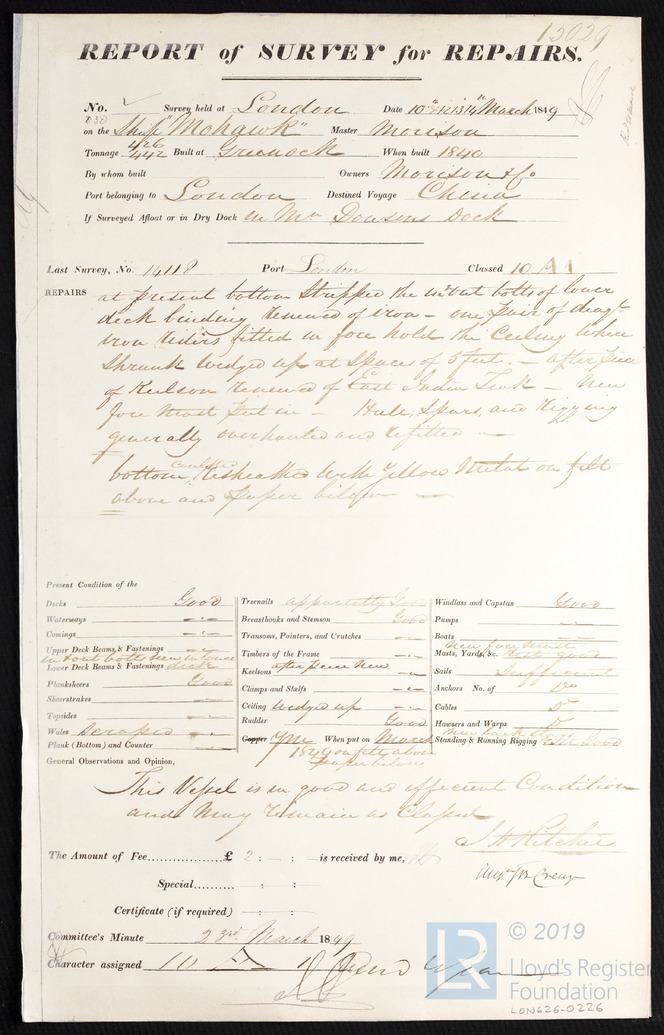 15029
REPORT of SURVEY for REPAIRS.
No. Survey held at London Date 10th 12 13 14th March 1849
on the Ship "Mohawk" Master Morison
Tonnage 426 442 Built at Greenock When built 1840
By whom built Owners Morison & Co
Port belonging to London Destined Voyage China
If Surveyed Afloat or in Dry Dock in Mr Dowsons Dock
Last Survey, No. 14118 Port London Classed 10 A1
REPAIRS at present bottom Stripped the in & out bolts of lower
deck binding renewed of iron – one pair of diagl
iron riders fitted in fore hold the Ceiling where
Shrunk wedged up at Spaces of 5 feet. – after piece
of Keelson renewed of East India Teak – New
fore mast put in – Hull, Spars, and Rigging
generally overhauled and refitted –
caulked
bottom Resheathed with yellow Metal on felt
above and paper below –
Present Condition of the
Decks Good
Waterways
Comings
Upper Deck Beams & Fastenings
in & out bolts new in lower
Lower Deck Beams & Fastenings deck
Planksheers Good
Sheerstrakes
Topsides
Wales Scraped
Plank (Bottom) and Counter
Treenails apparently Good
Breasthooks and Stemson Good
Transons, Pointers, and Crutches
Timbers of the Frame
Keelsons after piece new
Clamps and Shelfs
Ceiling Wedged up
Rudder Good
Copper YM When put on March
1849 on felt above
paper below
Windlass and Capstan Good
Pumps
Boats
New fore mast
Masts, Yards, &c. rest good
Sails Sufficient
Anchors No. of Do
Cables Do
Hawsers and Warps Do
Standing & Running Rigging rest Good
General Observations and Opinion,
This Vessel is in good and efficient Condition
and may remain as Classed
J H Ritchie
The Amount of Fee £ 2 : – : is received by me,
Special : :
Certificate (if required) : :
Committee's Minute 23rd March 1849
Character assigned 10 A 1
© 2019
LR
Lloyd's Register
Foundation
LON626-0226